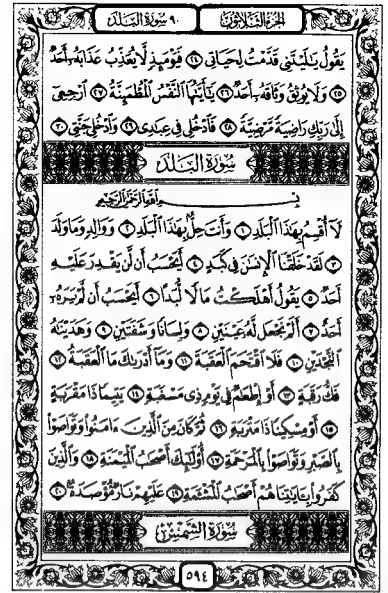 الجزء الثلاثون ٩٠ سورة البلد
يَقُولُ يَٰلَيْتَنِي قَدَّمْتُ لِحَيَاتِي ٢٤ فَيَوْمَئِذٍ لَّا يُعَذِّبُ عَذَابَهُۥٓ أَحَدٌ
٢٥ وَلَا يُوثِقُ وَثَاقَهُۥٓ أَحَدٌ ٢٦ يَٰٓأَيَّتُهَا ٱلنَّفْسُ ٱلْمُطْمَئِنَّةُ ٢٧ ٱرْجِعِىٓ
إِلَىٰ رَبِّكِ رَاضِيَةً مَّرْضِيَّةً ٢٨ فَٱدْخُلِى فِى عِبَٰدِى ٢٩ وَٱدْخُلِى جَنَّتِى ٣٠
سورة البلد
بِسْمِ ٱللَّهِ ٱلرَّحْمَٰنِ ٱلرَّحِيمِ
لَآ أُقْسِمُ بِهَٰذَا ٱلْبَلَدِ ١ وَأَنتَ حِلٌّۢ بِهَٰذَا ٱلْبَلَدِ ٢ وَوَالِدٍ وَمَا وَلَدَ
٣ لَقَدْ خَلَقْنَا ٱلْإِنسَٰنَ فِى كَبَدٍ ٤ أَيَحْسَبُ أَن لَّن يَقْدِرَ عَلَيْهِ
أَحَدٌ ٥ يَقُولُ أَهْلَكْتُ مَالًا لُّبَدًا ٦ أَيَحْسَبُ أَن لَّمْ يَرَهُۥٓ
أَحَدٌ ٧ أَلَمْ نَجْعَل لَّهُۥ عَيْنَيْنِ ٨ وَلِسَانًا وَشَفَتَيْنِ ٩ وَهَدَيْنَٰهُ
ٱلنَّجْدَيْنِ ١٠ فَلَا ٱقْتَحَمَ ٱلْعَقَبَةَ ١١ وَمَآ أَدْرَىٰكَ مَا ٱلْعَقَبَةُ ١٢
فَكُّ رَقَبَةٍ ١٣ أَوْ إِطْعَٰمٌ فِى يَوْمٍ ذِى مَسْغَبَةٍ ١٤ يَتِيمًا ذَا مَقْرَبَةٍ
١٥ أَوْ مِسْكِينًا ذَا مَتْرَبَةٍ ١٦ ثُمَّ كَانَ مِنَ ٱلَّذِينَ ءَامَنُوا۟ وَتَوَاصَوْا۟
بِٱلصَّبْرِ وَتَوَاصَوْا۟ بِٱلْمَرْحَمَةِ ١٧ أُو۟لَٰٓئِكَ أَصْحَٰبُ ٱلْمَيْمَنَةِ ١٨ وَٱلَّذِينَ
كَفَرُوا۟ بِـَٔايَٰتِنَا هُمْ أَصْحَٰبُ ٱلْمَشْـَٔمَةِ ١٩ عَلَيْهِمْ نَارٌ مُّؤْصَدَةٌۢ ٢٠
سورة الشمس
٥٩٤